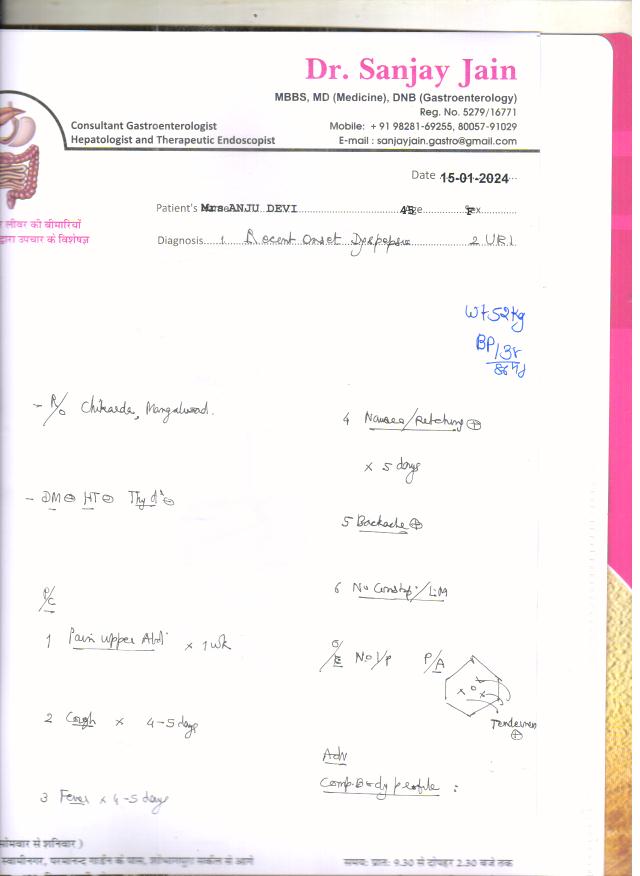 Dr. Sanjay Jain
MBBS, MD (Medicine), DNB (Gastroenterology)
Reg. No. 5279/16771
Consultant Gastroenterologist
Mobile: + 91 98281-69255, 80057-91029
Hepatologist and Therapeutic Endoscopist
E-mail : sanjayjain.gastro@gmail.com
Date 15-01-2024
लीवर की बीमारियों
द्वारा उपचार के विशेषज्ञ
Patient's ANJU DEVI 45 F
Diagnosis 1 Recent Onset 2 URI
Wt 52kg
BP 138
- R/o Chikarda, Mangalwad.
- DM ⊖ HT ⊖ Thy d' ⊖
P/C
1 Pain upper Abd. x 1 wk
2 Cough x 4-5 days
3 Fever x 4-5 days
4 Nausea/Retching ⊕
x 5 days
5 Backache ⊕
6 No Constip./LM
O/E P/A
Tenderness
⊕
Adv
Comp. Body profile :
सोमवार से शनिवार )
समय: प्रात: 9.30 से दोपहर 2.30 बजे तक